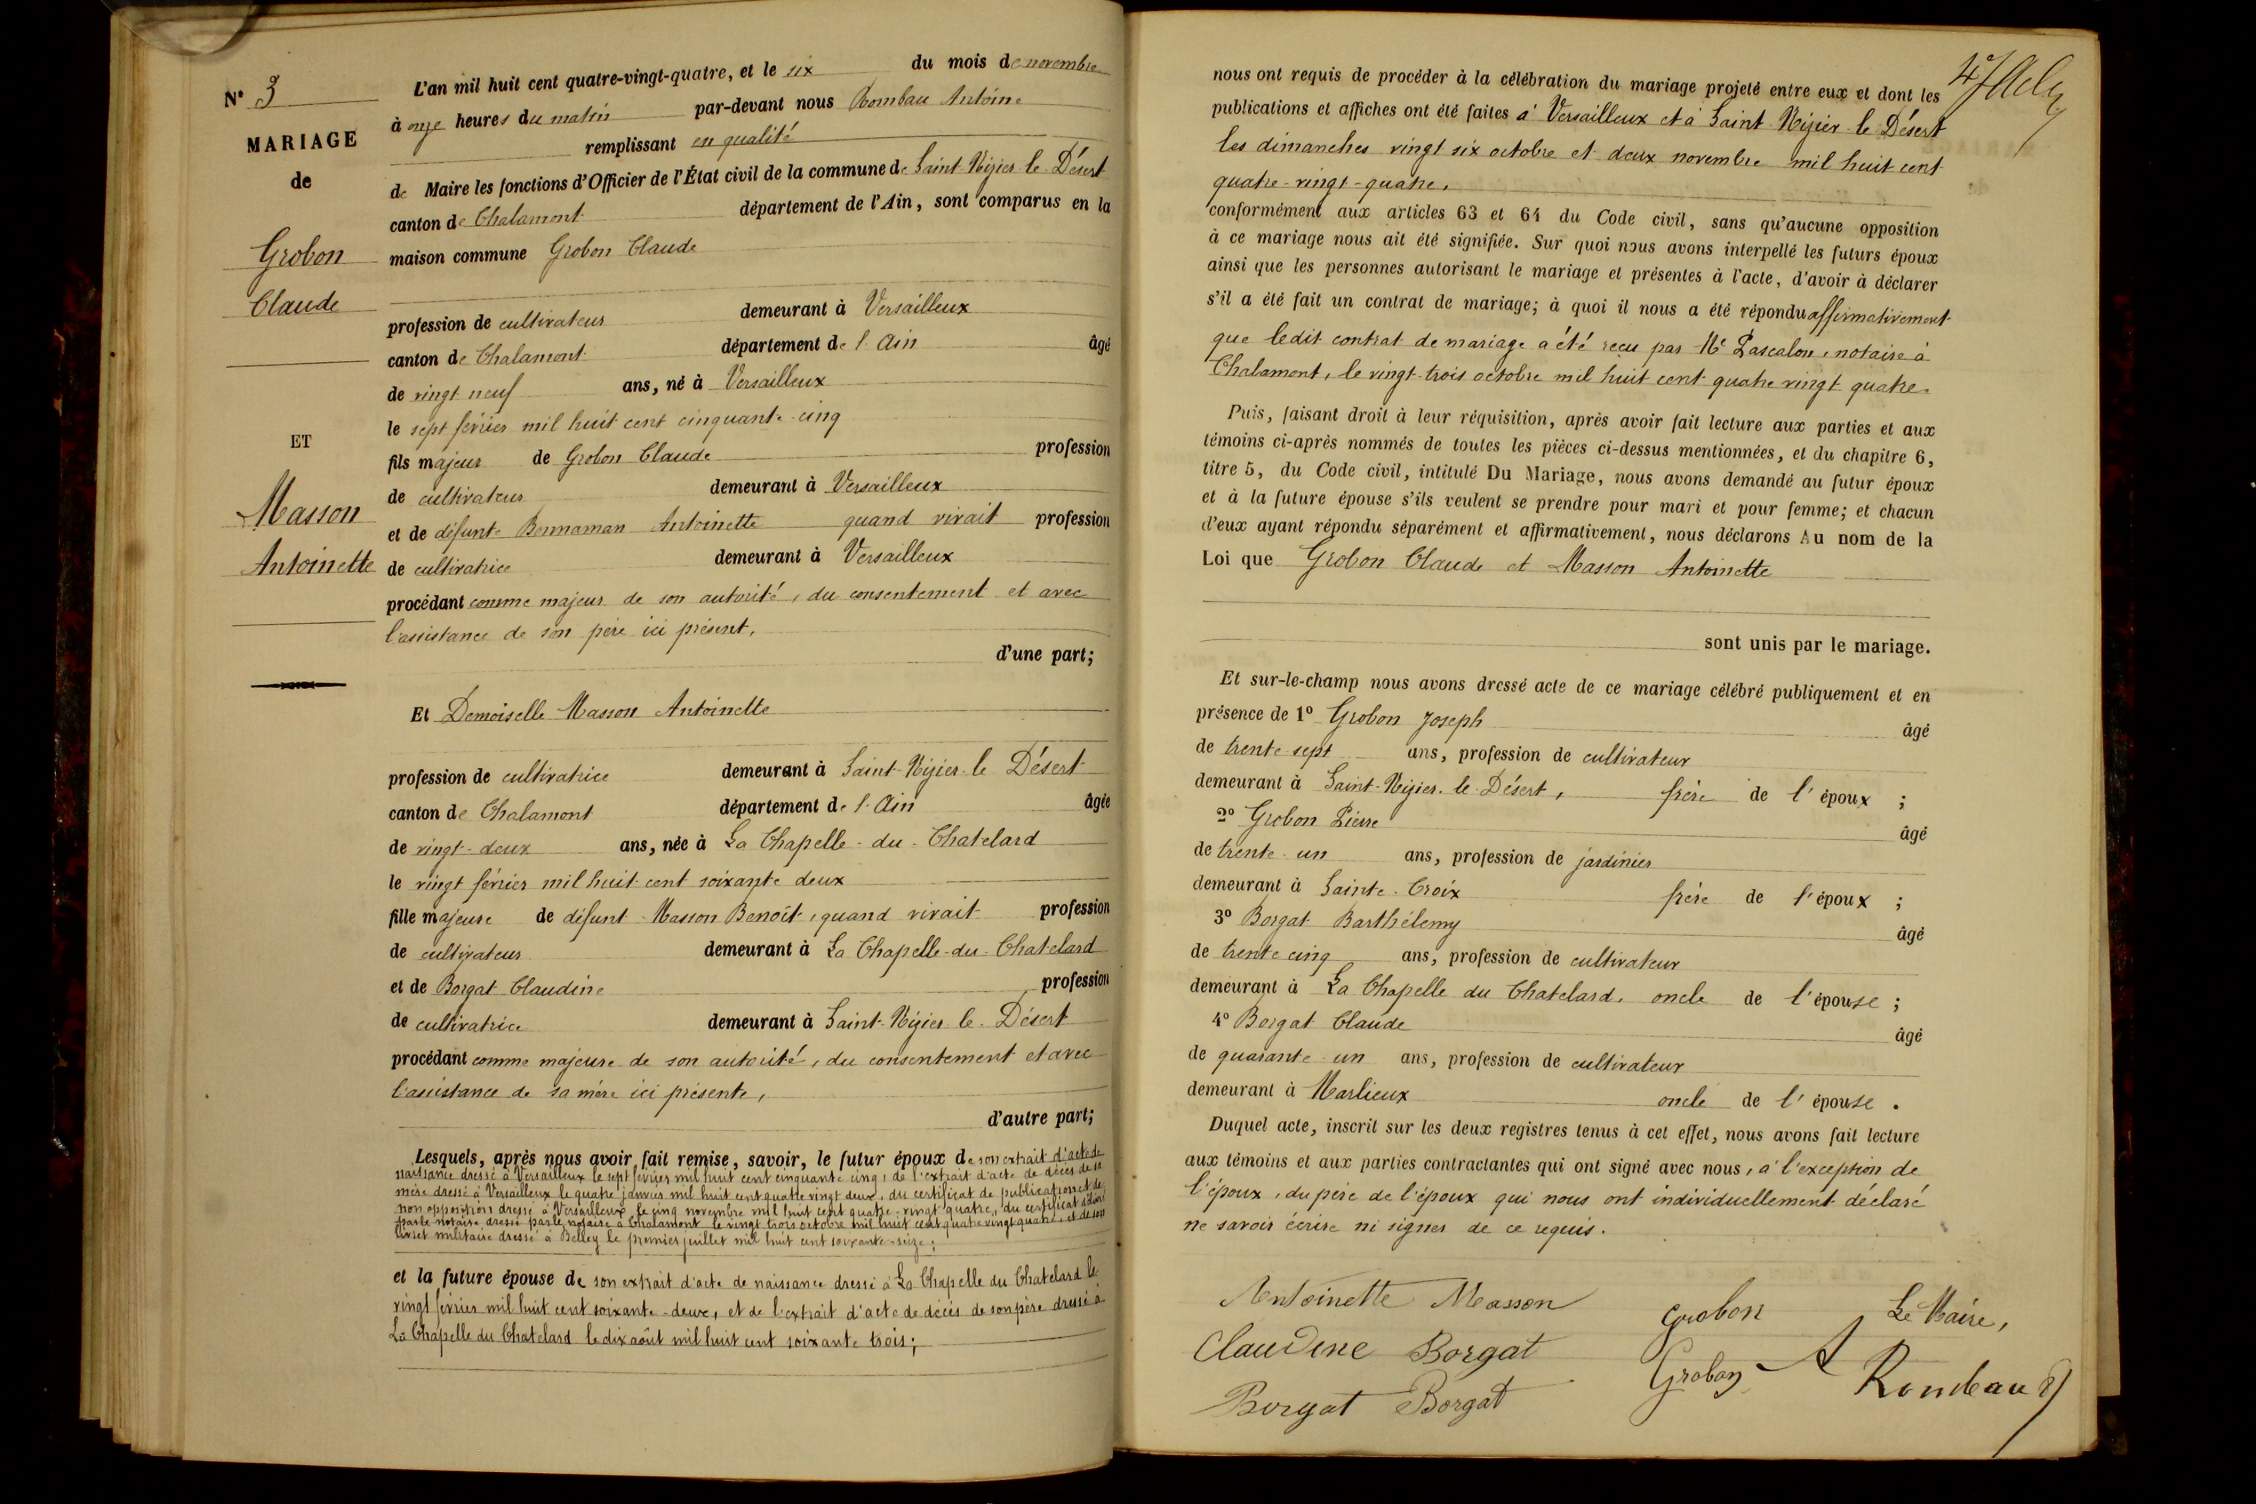 N° 3
MARIAGE
de
Grobon
Claude
ET
Masson
Antoinette
L'an mil huit cent quatre-vingt-quatre, et le six du mois de novembre
à onze heures du matin par-devant nous Rombau Antoine
remplissant en qualité
de Maire les fonctions d'Officier de l'État civil de la commune de Saint-Nizier le Désert
canton de Chalamont département de l'Ain, sont comparus en la
maison commune Grobon Claude
profession de cultivateur demeurant à Versailleux
canton de Chalamont département de l'Ain âgé
de vingt neuf ans, né à Versailleux
le sept février mil huit cent cinquante-cinq
fils majeur de Grobon Claude profession
de cultivateur demeurant à Versailleux
et de défunte Bonnaman Antoinette quand vivait profession
de cultivatrice demeurant à Versailleux
procédant comme majeur de son autorité, du consentement et avec
l'assistance de son père ici présent,
d'une part;
Et Demoiselle Masson Antoinette
profession de cultivatrice demeurant à Saint-Nizier-le Désert
canton de Chalamont département de l'Ain âgée
de vingt-deux ans, née à La Chapelle-du-Chatelard
le vingt février mil huit cent soixante deux
fille majeure de défunt Masson Benoît, quand vivait profession
de cultivateur demeurant à La Chapelle-du-Chatelard
et de Borgat Claudine profession
de cultivatrice demeurant à Saint-Nizier-le-Désert
procédant comme majeure de son autorité, du consentement et avec
l'assistance de sa mère ici présente,
d'autre part;
Lesquels, après nous avoir fait remise, savoir, le futur époux de son extrait d'acte de
naissance dressé à Versailleux le sept février mil huit cent cinquante cinq, de l'extrait d'acte de décès de sa
mère dressé à Versailleux le quatre janvier mil huit cent quatre vingt deux, du certificat de publication et de
non opposition dressé à Versailleux le cinq novembre mil huit cent quatre-vingt quatre, du certificat délivré
par le notaire dressé par le notaire à Chalamont le vingt trois octobre mil huit cent quatre vingt quatre, et de son
livret militaire dressé à Belley le premier juillet mil huit cent soixante-seize;
et la future épouse de son extrait d'acte de naissance dressé à La Chapelle du Chatelard le
vingt février mil huit cent soixante-deux, et de l'extrait d'acte de décès de son père dressé à
La Chapelle du Chatelard le dix août mil huit cent soixante trois;
nous ont requis de procéder à la célébration du mariage projeté entre eux et dont les
publications et affiches ont été faites à Versailleux et à Saint-Nizier-le Désert
les dimanches vingt six octobre et deux novembre mil huit cent
quatre-vingt-quatre,
conformément aux articles 63 et 64 du Code civil, sans qu'aucune opposition
à ce mariage nous ait été signifiée. Sur quoi nous avons interpellé les futurs époux
ainsi que les personnes autorisant le mariage et présentes à l'acte, d'avoir à déclarer
s'il a été fait un contrat de mariage; à quoi il nous a été répondu affirmativement
que ledit contrat de mariage a été reçu par Me Pascalon, notaire à
Chalamont, le vingt-trois octobre mil huit cent quatre vingt quatre.
Puis, faisant droit à leur réquisition, après avoir fait lecture aux parties et aux
témoins ci-après nommés de toutes les pièces ci-dessus mentionnées, et du chapitre 6,
titre 5, du Code civil, intitulé Du Mariage, nous avons demandé au futur époux
et à la future épouse s'ils veulent se prendre pour mari et pour femme; et chacun
d'eux ayant répondu séparément et affirmativement, nous déclarons Au nom de la
Loi que Grobon Claude et Masson Antoinette
sont unis par le mariage.
Et sur-le-champ nous avons dressé acte de ce mariage célébré publiquement et en
présence de 1° Grobon Joseph âgé
de trente sept ans, profession de cultivateur
demeurant à Saint-Nizier-le-Désert, frère de l'époux ;
2° Grobon Pierre âgé
de trente-un ans, profession de jardinier
demeurant à Sainte-Croix frère de l'époux ;
3° Borgat Barthélemy âgé
de trente cinq ans, profession de cultivateur
demeurant à La Chapelle du Chatelard, oncle de l'épouse ;
4° Borgat Claude âgé
de quarante-un ans, profession de cultivateur
demeurant à Marlieux oncle de l'épouse .
Duquel acte, inscrit sur les deux registres tenus à cet effet, nous avons fait lecture
aux témoins et aux parties contractantes qui ont signé avec nous, à l'exception de
l'époux, du père de l'époux qui nous ont individuellement déclaré
ne savoir écrire ni signer de ce requis.
Antoinette Masson Grobon Le Maire,
Claudine Borgat Grobon A Rombau
Borgat Borgat